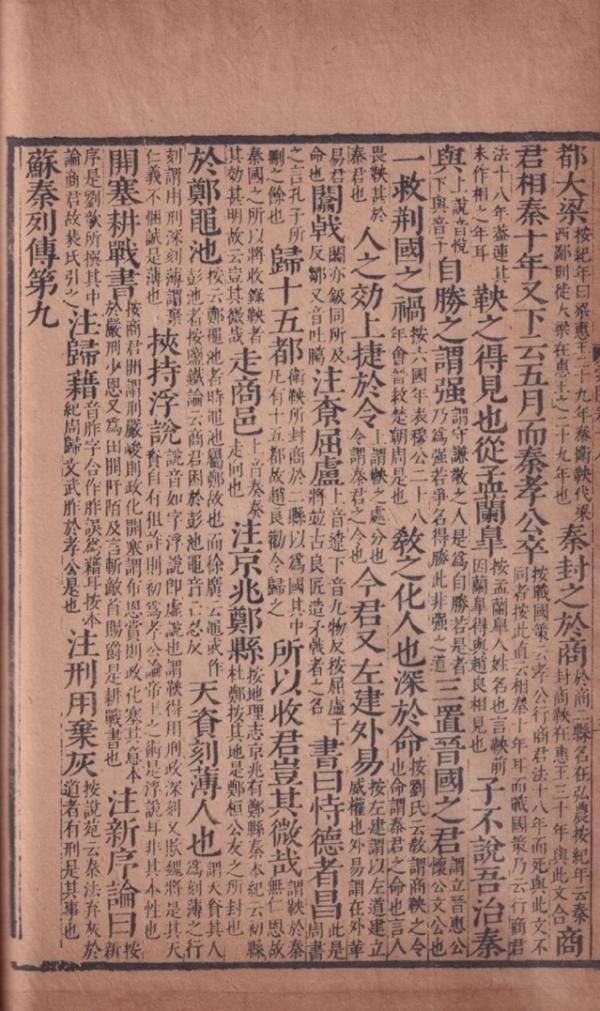 都大梁按紀年曰梁惠王二十九年秦衛鞅伐梁西鄙則徙大梁在惠王之二十九年也秦封之於商於商二縣名在弘農按紀年云秦封商鞅在惠王三十年與此文合商
君相秦十年又下云五月而秦孝公卒按戰國策云孝公行商君法十八年而死與此文不同者按此直云相秦十年耳而戰國策乃云行商君
法十八年蓋連其未作相之年耳鞅之得見也從孟蘭皐按孟蘭皐人姓名也言鞅前因蘭皐得與趙良相見也子不說吾治秦
與上說音悅下與音予自勝之謂强謂守謙敬之人是爲自勝若是者乃爲强若爭名得勝此非强之道三置晉國之君謂立晉惠公懷公文公也
一救荆國之禍按六國年表穆公二十八年會晉救楚朝周是也敎之化人也深於命按劉氏云敎謂商鞅之令也命謂秦君之命也言人
畏鞅甚於秦君也人之効上捷於令上謂鞅之處分也令謂秦君之令也今君又左建外易按左建謂以左道建立威權也外易謂在外革
易君命也闟戟闟亦鈒同所及反鄒又音吐臘注屈盧上音遼下音九物反按屈盧干將並古良匠造矛戟者之名書曰恃德者昌此是周書
之言孔子所刪之餘也歸十五都衛鞅所封商於二縣以爲國其中凡有十五都故趙良勸令歸之所以收君豈其微哉謂鞅於秦無仁恩故
秦國之所以將收錄鞅者其効甚明故云豈其微哉走商邑上音奏奏走向也注京兆鄭縣按地理志京兆有鄭縣秦本紀云初縣杜鄭按其地是鄭桓公友之所封也
於鄭黽池按云鄭黽池者時黽池屬鄭故也而徐廣云黽或作彭池者按鹽鐵論云商君困於彭池黽音亡忍反天資刻薄人也謂天資其人爲刻薄之行
刻謂用刑深刻薄謂棄仁義不悃誠是薄也挾持浮說說音如字浮說即虛說也謂鞅得用刑政深刻又欺魏將是其天資自有狙詐則初爲孝公論帝王之術是浮說耳非其本性也
開塞耕戰書按商君開謂刑嚴峻則政化開塞謂布恩賞則政化塞其意本於嚴刑少恩又爲田開阡陌及言斬敵首賜爵是耕戰書也注新序論曰按新
序是劉歆所撰其中論商君故裴氏引之注歸藉音胙字合作胙誤爲藉耳按本紀周歸文武胙於孝公是也注刑用棄灰按說苑云秦法弃灰於道者有刑是其事也
蘇秦列傳第九